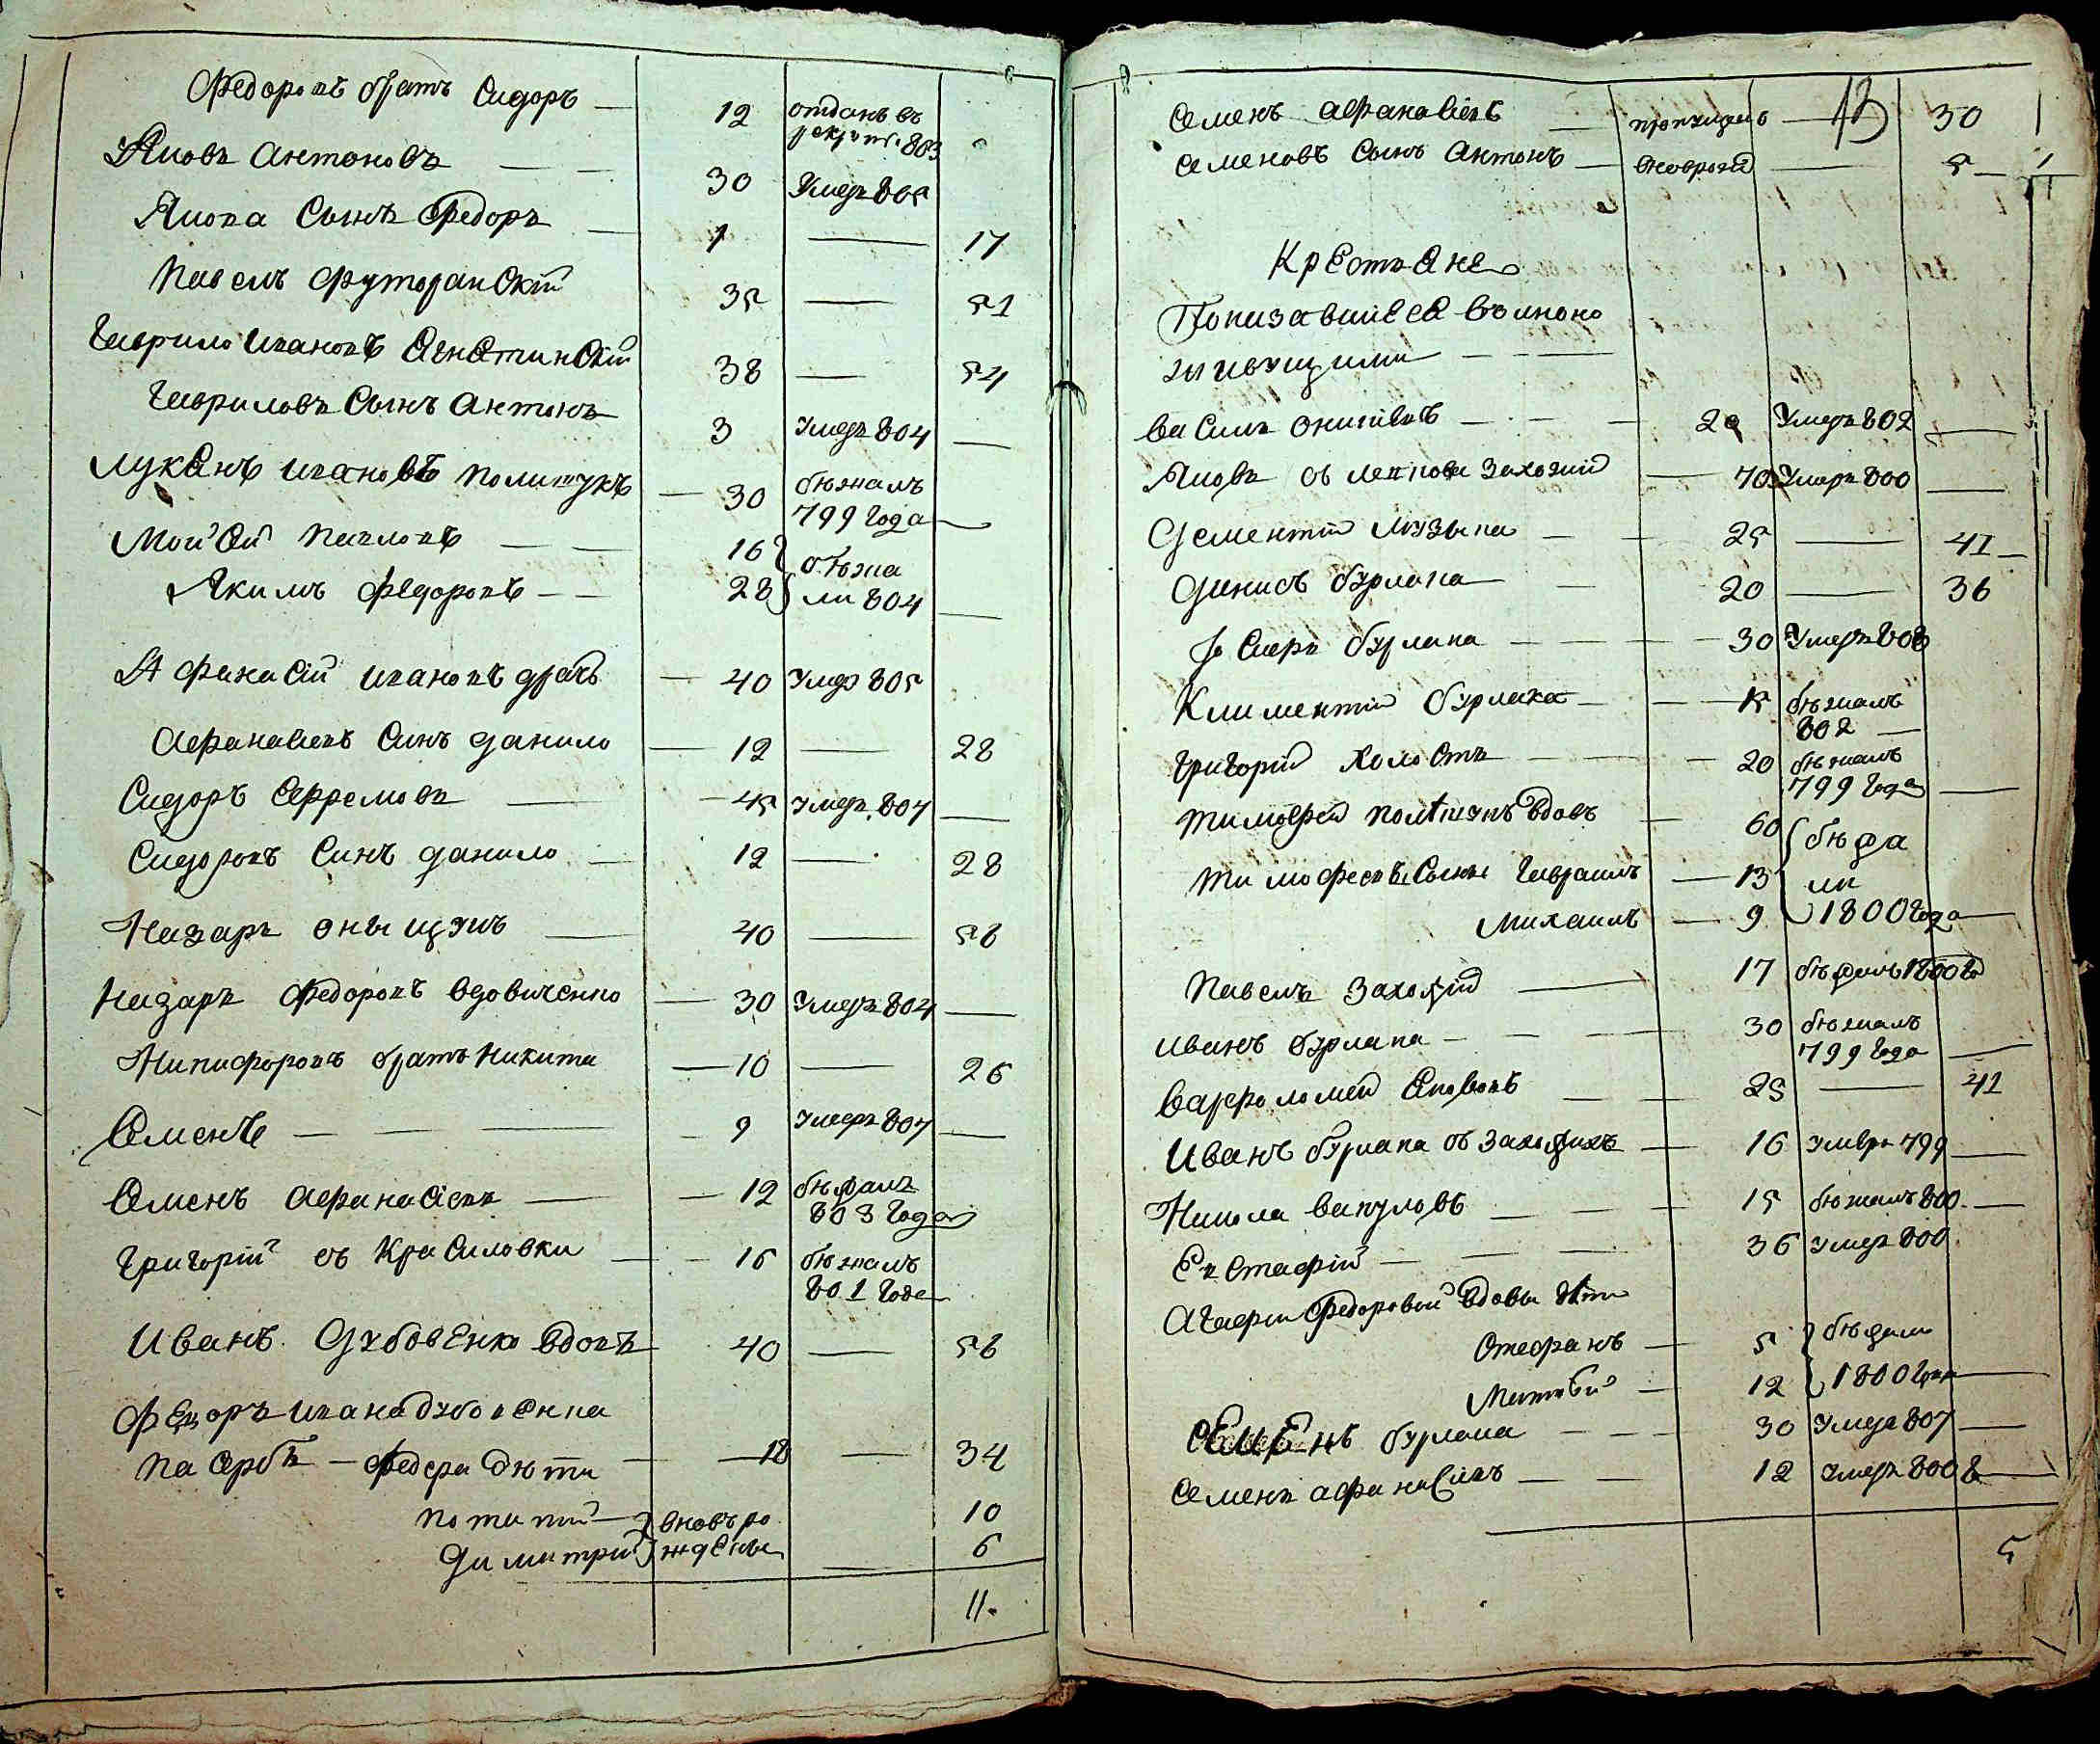 Федоровъ братъ Сидоръ — 12 отданъ въ
рекрут. 803
Яковъ Антоновъ — — 30 Умеръ 805
Якова Сынъ Федоръ — 1 — 17
Павелъ Футоранскій 35 — 51
Гаврило Ивановъ Ягнятинскій 38 — 54
Гавриловъ Сынъ Антонъ 3 Умеръ 804 —
Лукянъ Ивановъ Полищукъ — 30 бѣжалъ
799 года —
Мойсей Павловъ — — 16 бѣжа
Якимъ Федоровъ — — 28 ли 804 —
Афанасій Ивановъ драчъ — 40 Умеръ 805
Афанасіевъ Синъ Данило — 12 — 28
Сидоръ Ефремовъ — 45 умеръ 807 —
Сидоровъ Синъ Данило — 12 — 28
Назаръ Онищукъ — 40 — 56
Назаръ Федоровъ вдовиченко — 30 Умеръ 804 —
Никифоровъ братъ Никита — 10 — 26
Семенъ — — — 9 умеръ 807 —
Семенъ Афанасіевъ — 12 бѣжалъ
803 года
Григорій съ Красиловки — 16 бѣжалъ
801 года
Иванъ Дубовенко вдовъ 40 — 56
Федоръ Ивана Дубовенка
пасербъ — 18 — 34
Федора дѣти
Потапій вновь ро 10
Димитрій ждены — 6
11.
Семенъ Афанасіевъ — пропущенъ — 13 30 1
Семеновъ Сынъ Антонъ — — 5 — 1
Крестьяне
Показавшіеся вольно
живущими — — —
Василь — — — 20 Умеръ 802 —
Яковъ съ захожій — 70 Умеръ 800 —
Дементій Музыка — — 25 — 41 —
Динисъ бурлака — 20 — 36
Іосифъ бурлака — — 30 Умеръ 808
Климентій бурлака — — 15 бѣжалъ
802 —
Григорій Холостъ — — 20 бѣжалъ
799 года —
Тимофей вдовъ — 60 бѣжа
Тимофеевы Сыны Гавриилъ — 13 ли
Михаилъ — 9 1800 года —
Павелъ Захожій — 17 бѣжалъ 1800 го
Иванъ бурлака — — 30 бѣжалъ
799 года —
Варфоломей Якововъ — — 25 — 41
Иванъ бурлака съ захожихъ — 16 умеръ 799 —
Никола Вакуловъ — — 15 бѣжалъ 800 —
Евстафій — — — 36 умеръ 800
Агафіи Федоровой вдовы дѣти
Стефанъ — 5 бѣжали
Матвѣй — 12 1800 года —
Семенъ бурлака — — 30 Умеръ 807 —
Семенъ Афанасіевъ — — 12 умеръ 800 —
5